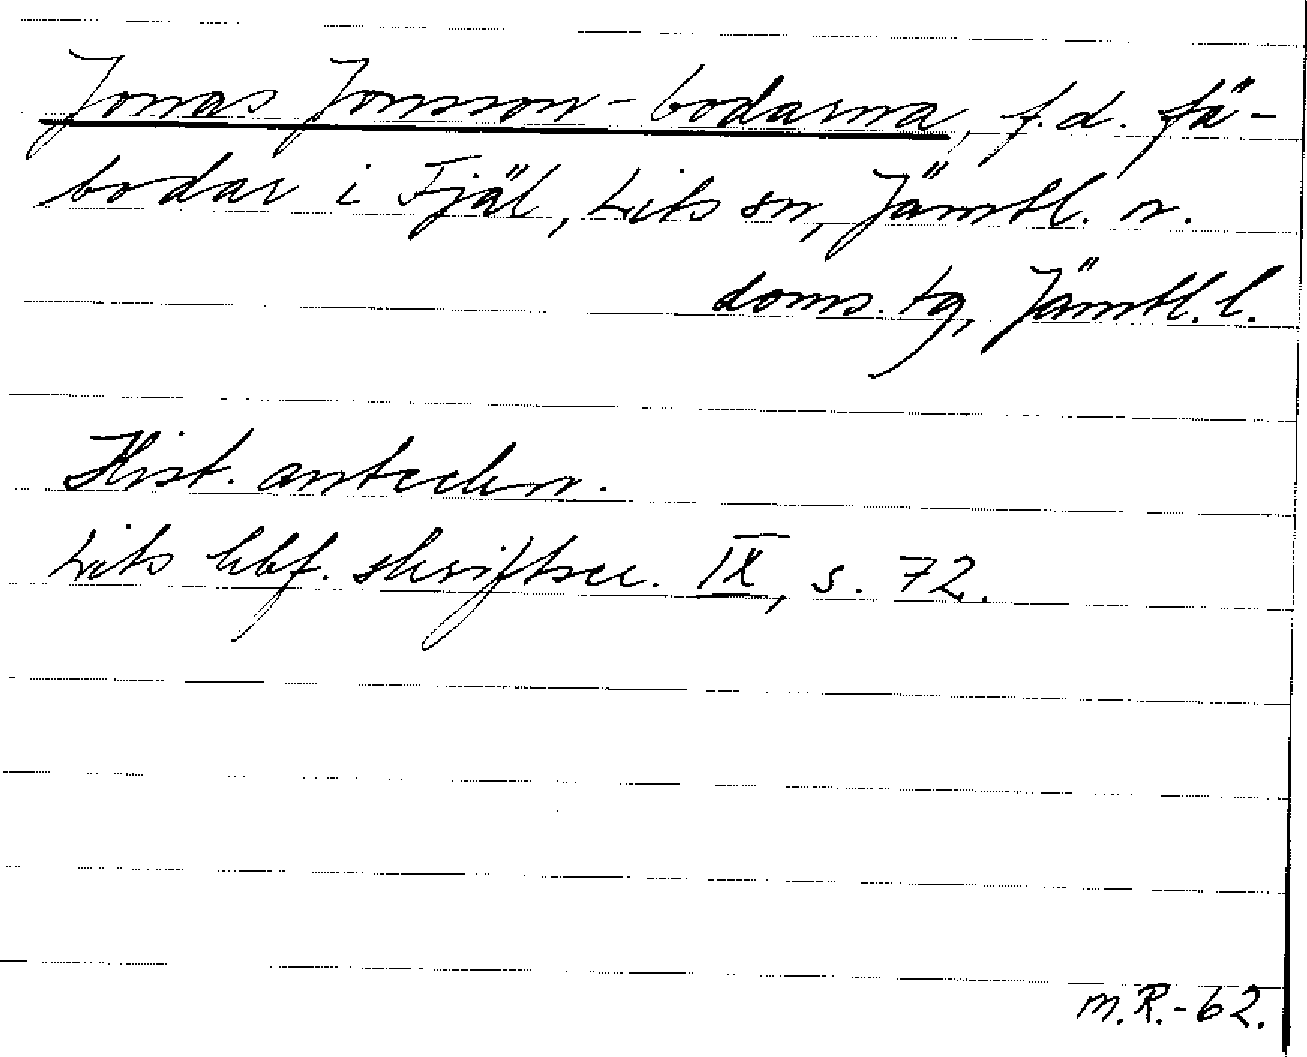 Jonas Jonsson-bodarna, f.d. fä-
bodar i Fjäl, Lits sn, Jämtl. n.
doms. tg, Jämtl. l.
Hist. anteckn.
Lits hbf. skriftser. IX, s. 72.
M.R.-62.